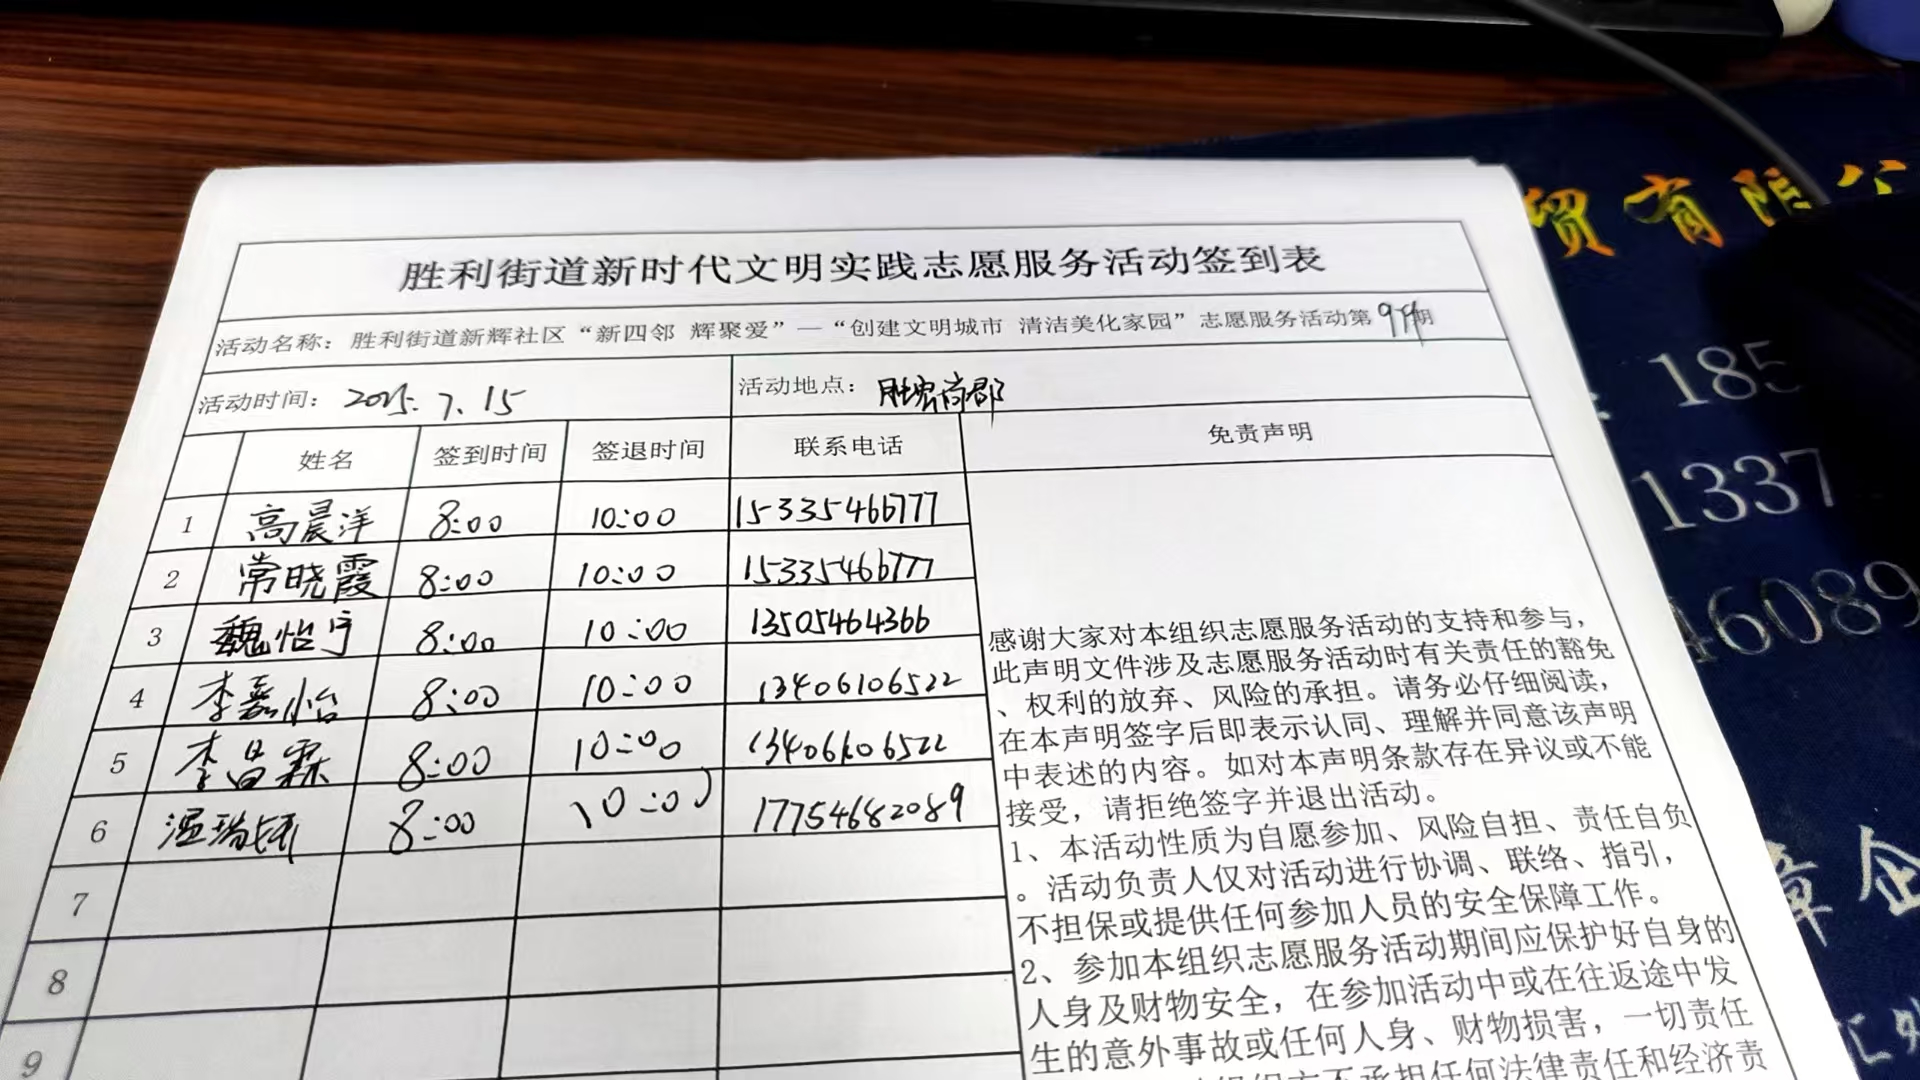 胜利街道新时代文明实践志愿服务活动签到表
活动名称：胜利街道新辉社区“新四邻 辉聚爱”—“创建文明城市 清洁美化家园”志愿服务活动第99期
活动时间：2025.7.15 活动地点：胜宏尚郡
姓名 签到时间 签退时间 联系电话 免责声明
1 高晨洋 8:00 10:00 15335466777
2 常晓霞 8:00 10:00 15335466777
3 魏怡宁 8:00 10:00 13505464366
4 李嘉怡 8:00 10:00 13406106522
5 李昌霖 8:00 10:00 13406106522
6 温瑞 8:00 10:00 17754682089
7
8
9
感谢大家对本组织志愿服务活动的支持和参与，
此声明文件涉及志愿服务活动时有关责任的豁免
、权利的放弃、风险的承担。请务必仔细阅读，
在本声明签字后即表示认同、理解并同意该声明
中表述的内容。如对本声明条款存在异议或不能
接受，请拒绝签字并退出活动。
1、本活动性质为自愿参加、风险自担、责任自负
。活动负责人仅对活动进行协调、联络、指引，
不担保或提供任何参加人员的安全保障工作。
2、参加本组织志愿服务活动期间应保护好自身的
人身及财物安全，在参加活动中或在往返途中发
生的意外事故或任何人身、财物损害，一切责任
不承担任何法律责任和经济责
贸有限公
185
1337
46089
章企
汇